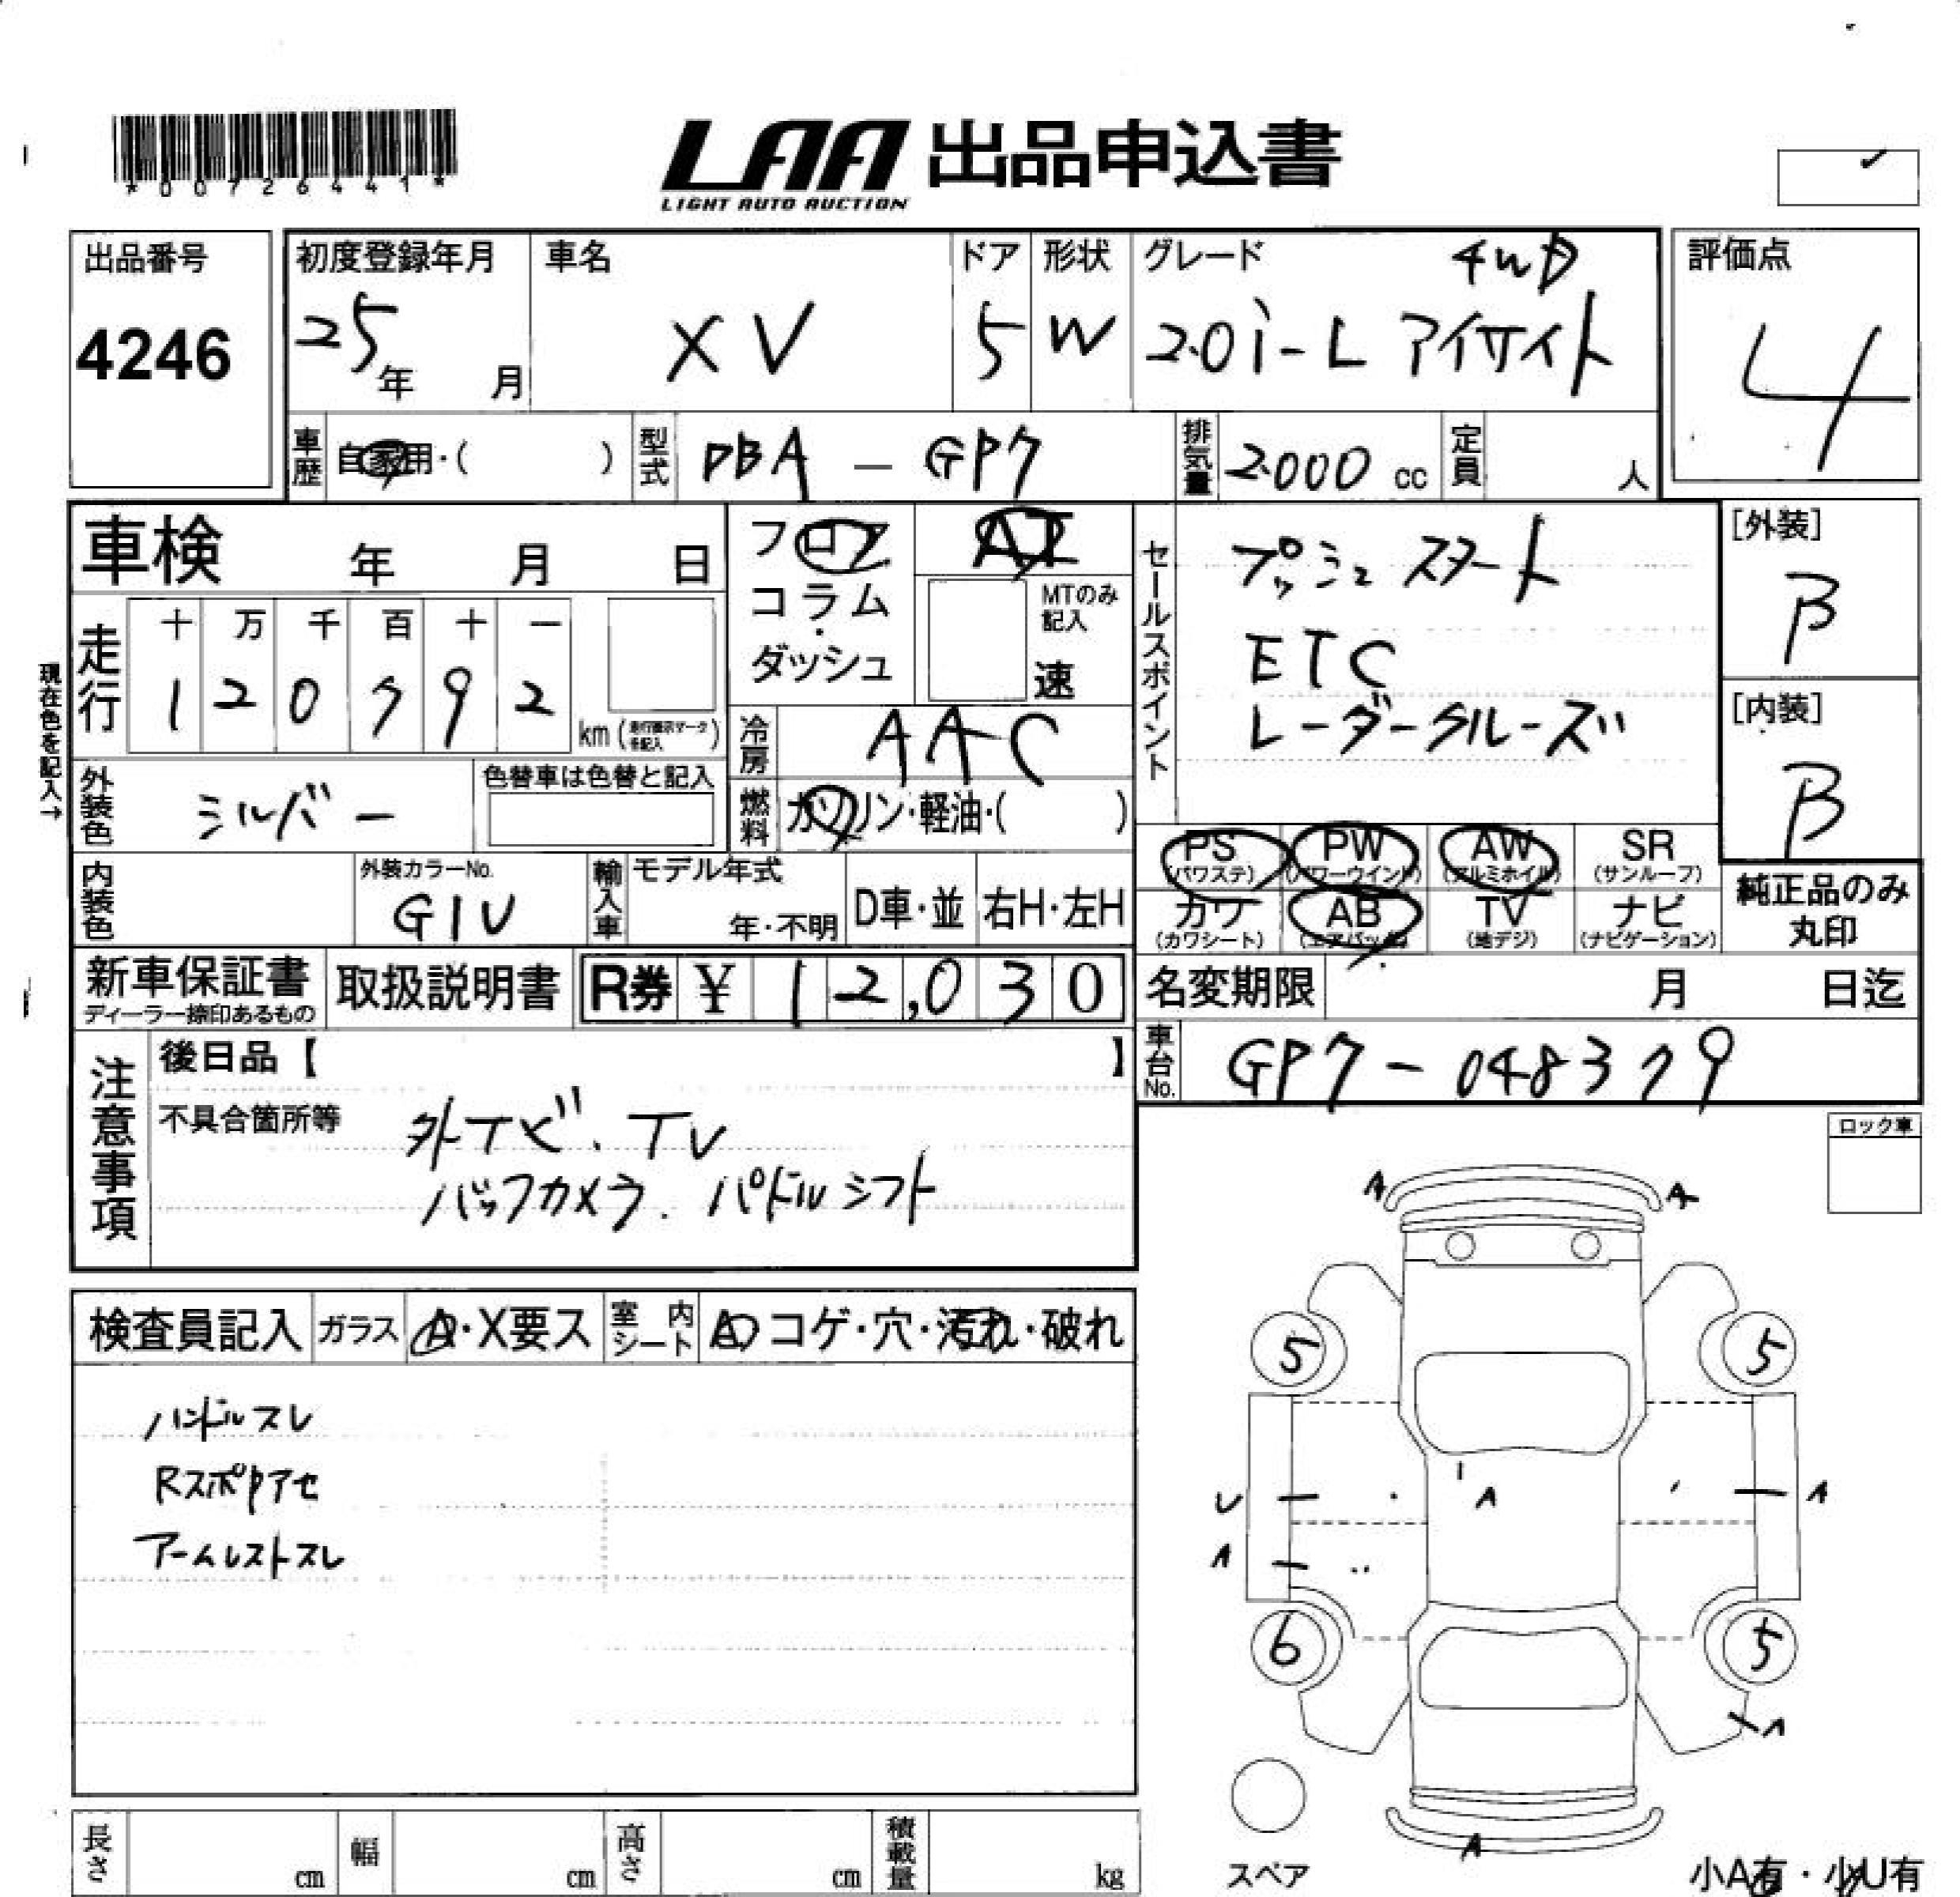 *00726441*
LAA 出品申込書
LIGHT AUTO AUCTION
出品番号
4246
初度登録年月
25年 月
車名
XV
ドア
5
形状
W
グレード 4WD
2.0i-L アイサイト
評価点
4
車歴 自家用・( )
型式 DBA - GP7
排気量 2000 cc
定員 人
車検 年 月 日
走行 十 万 千 百 十 一
1 2 0 7 9 2 km (走行提示マークを記入)
現在色を記入→
フロア
コラム・
ダッシュ
AT
MTのみ記入
速
冷房 AAC
燃料 ガソリン・軽油・( )
セールスポイント
プッシュスタート
ETC
レーダークルーズ
[外装]
B
[内装]
B
外装色 シルバー
色替車は色替と記入
内装色
外装カラーNo.
G1U
輸入車
モデル年式
年・不明
D車・並
右H・左H
PS (パワステ)
PW (パワーウインド)
AW (アルミホイル)
SR (サンルーフ)
カワ (カワシート)
AB (エアバッグ)
TV (地デジ)
ナビ (ナビゲーション)
純正品のみ
丸印
新車保証書
ディーラー捺印あるもの
取扱説明書
R券 ¥ 12,030
名変期限 月 日迄
車台No. GP7-048379
注意事項
後日品【 】
不具合箇所等
外ナビ.TV
バックカメラ.パドルシフト
ロック車
検査員記入 ガラス A・X要ス 室内シート A コゲ・穴・汚れ・破れ
ハンドルスレ
Rスポりアセ
アームレストスレ
A A
5 5
U A A
A
6 5
A
A
スペア
小A有・小U有
長さ cm
幅 cm
高さ cm
積載量 kg